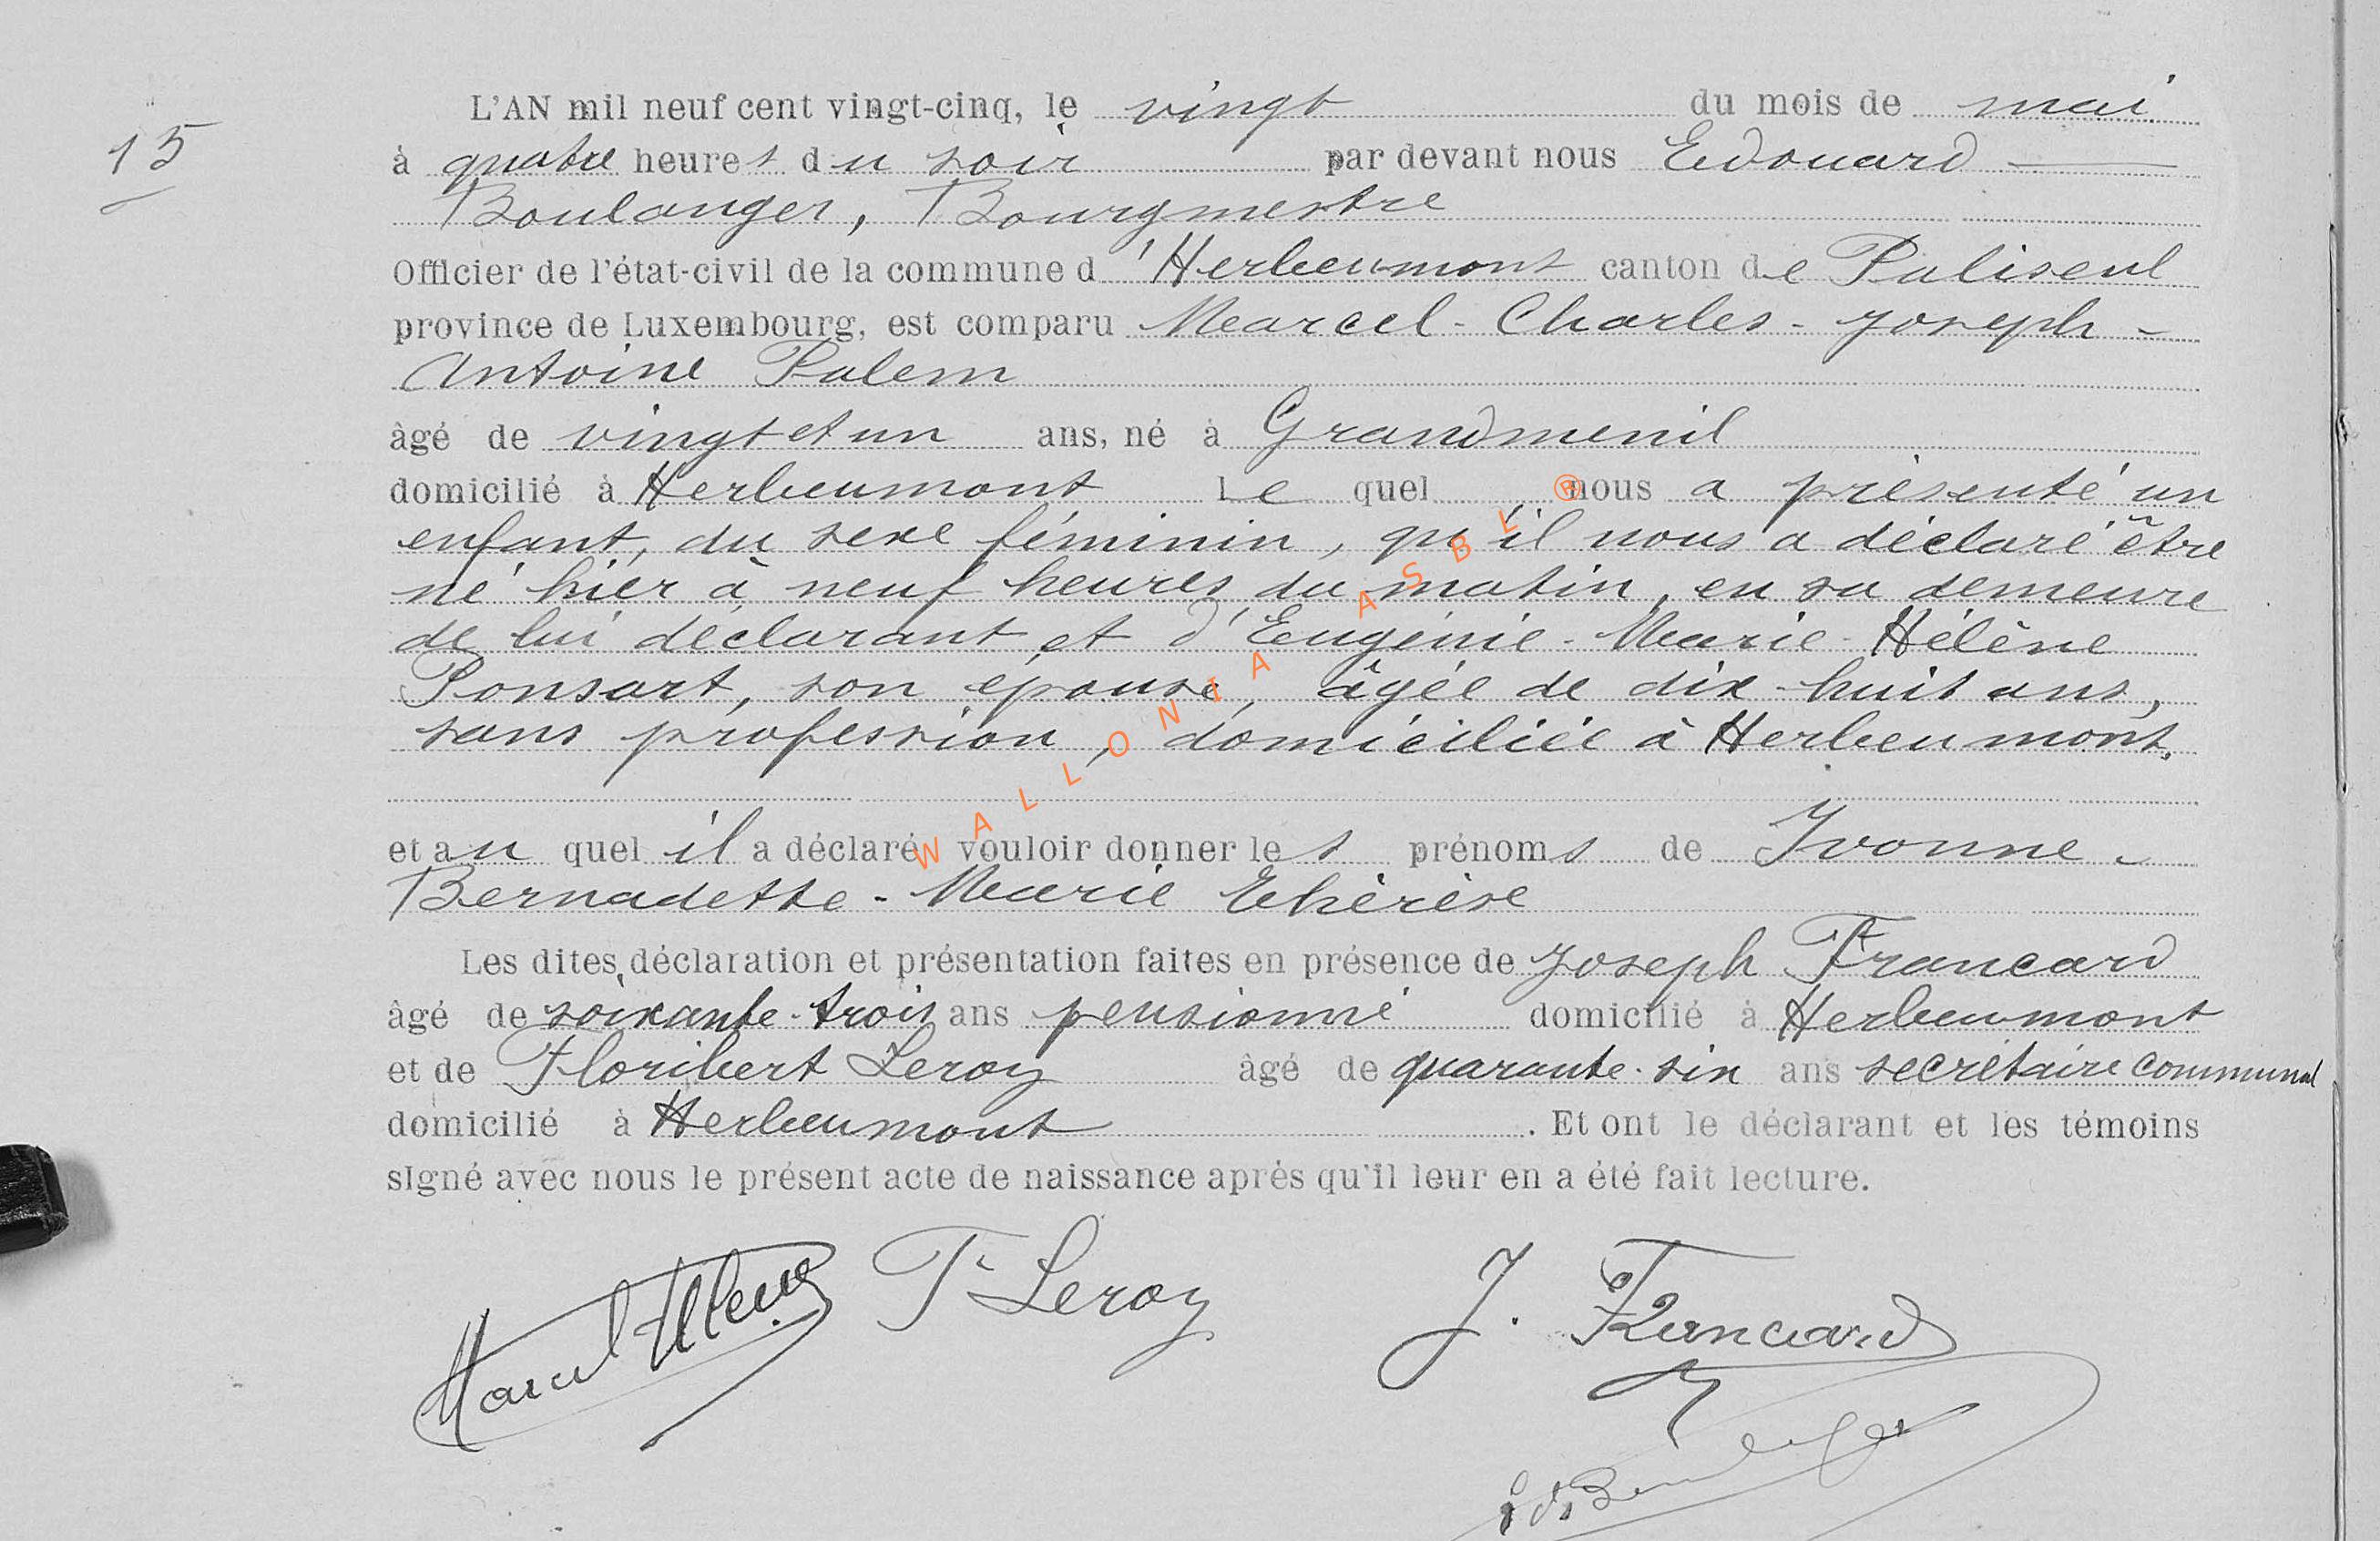 15
L'AN mil neuf cent vingt-cinq, le vingt du mois de mai
à quatre heures du soir par devant nous Edouard
Boulanger, Bourgmestre
Officier de l'état-civil de la commune d'Herbeumont canton de Paliseul
province de Luxembourg, est comparu Marcel-Charles-Joseph-
Antoine Palem
âgé de vingt et un ans, né à Grandmenil
domicilié à Herbeumont Le quel nous a présenté un
enfant, du sexe féminin, qu'il nous a déclaré être
né hier à neuf heures du matin, en sa demeure
de lui déclarant et d'Eugénie-Marie-Hélène
Ponsart, son épouse, âgée de dix-huit ans,
sans profession, domiciliée à Herbeumont.
et au quel il a déclaré vouloir donner les prénoms de Yvonne-
Bernadette-Marie Thérèse
Les dites déclaration et présentation faites en présence de Joseph Francard
âgé de soixante-trois ans pensionné domicilié à Herbeumont
et de Floribert Leroy âgé de quarante-six ans secrétaire communal
domicilié à Herbeumont. Et ont le déclarant et les témoins
signé avec nous le présent acte de naissance après qu'il leur en a été fait lecture.
Marcel F Leroy J. Francard
Ed. Boulanger
WALLONIA ASBL ®